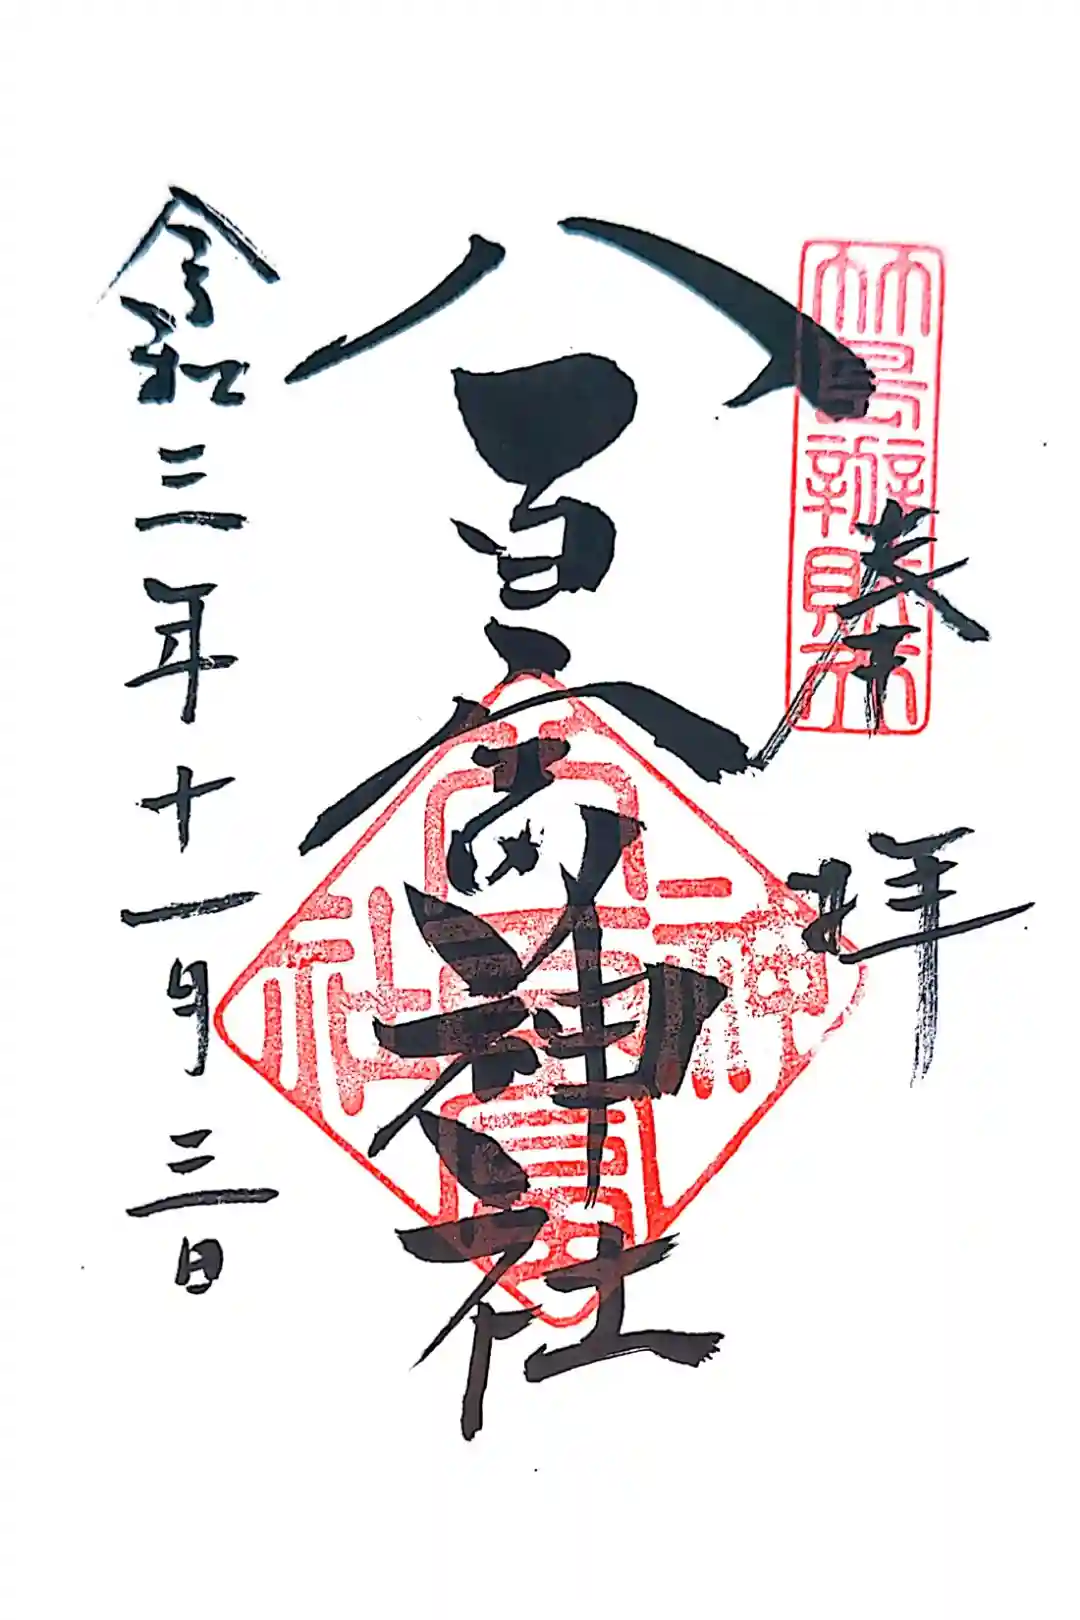 奉拝
竹島辨財天
八百富神社
八百富神社
令和三年十一月三日